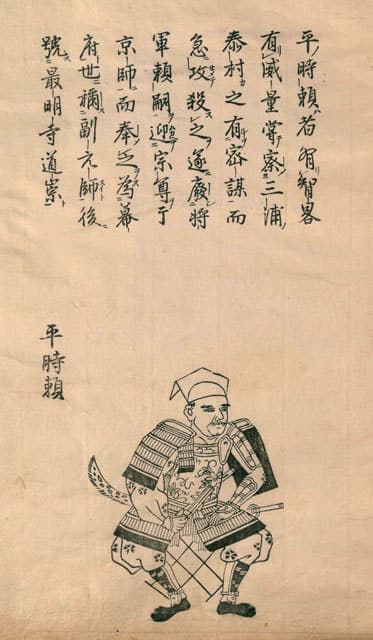 平時頼者有智畧
有威量嘗察三浦
泰村之有密謀而
急攻殺之遂廢將
軍頼嗣迎宗尊于
京師而奉之為幕
府世禰副元帥後
號最明寺道崇
平時頼